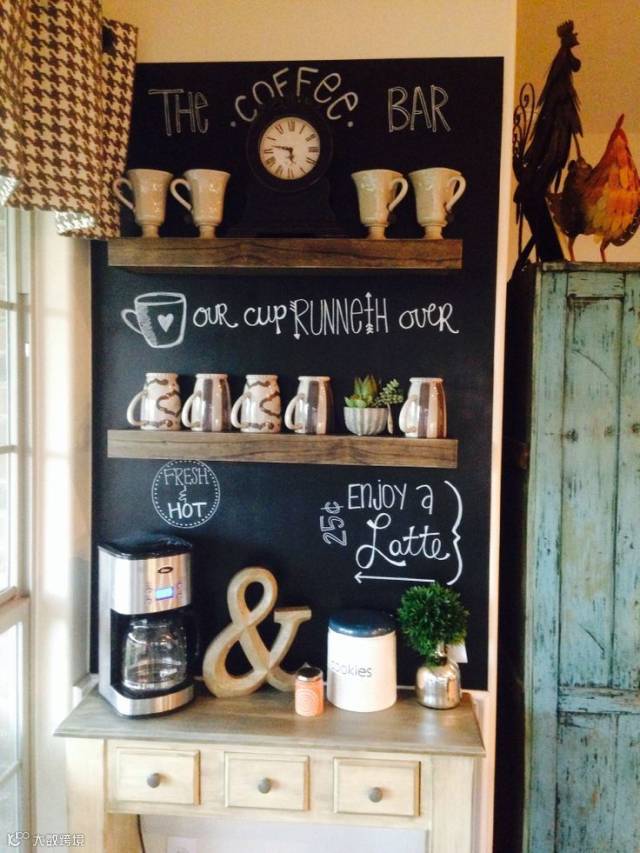 THE COFFEE BAR
OUR CUP RUNNETH OVER
FRESH
&
HOT
ENJOY A
25¢
Latte
&
cookies
大数跨境